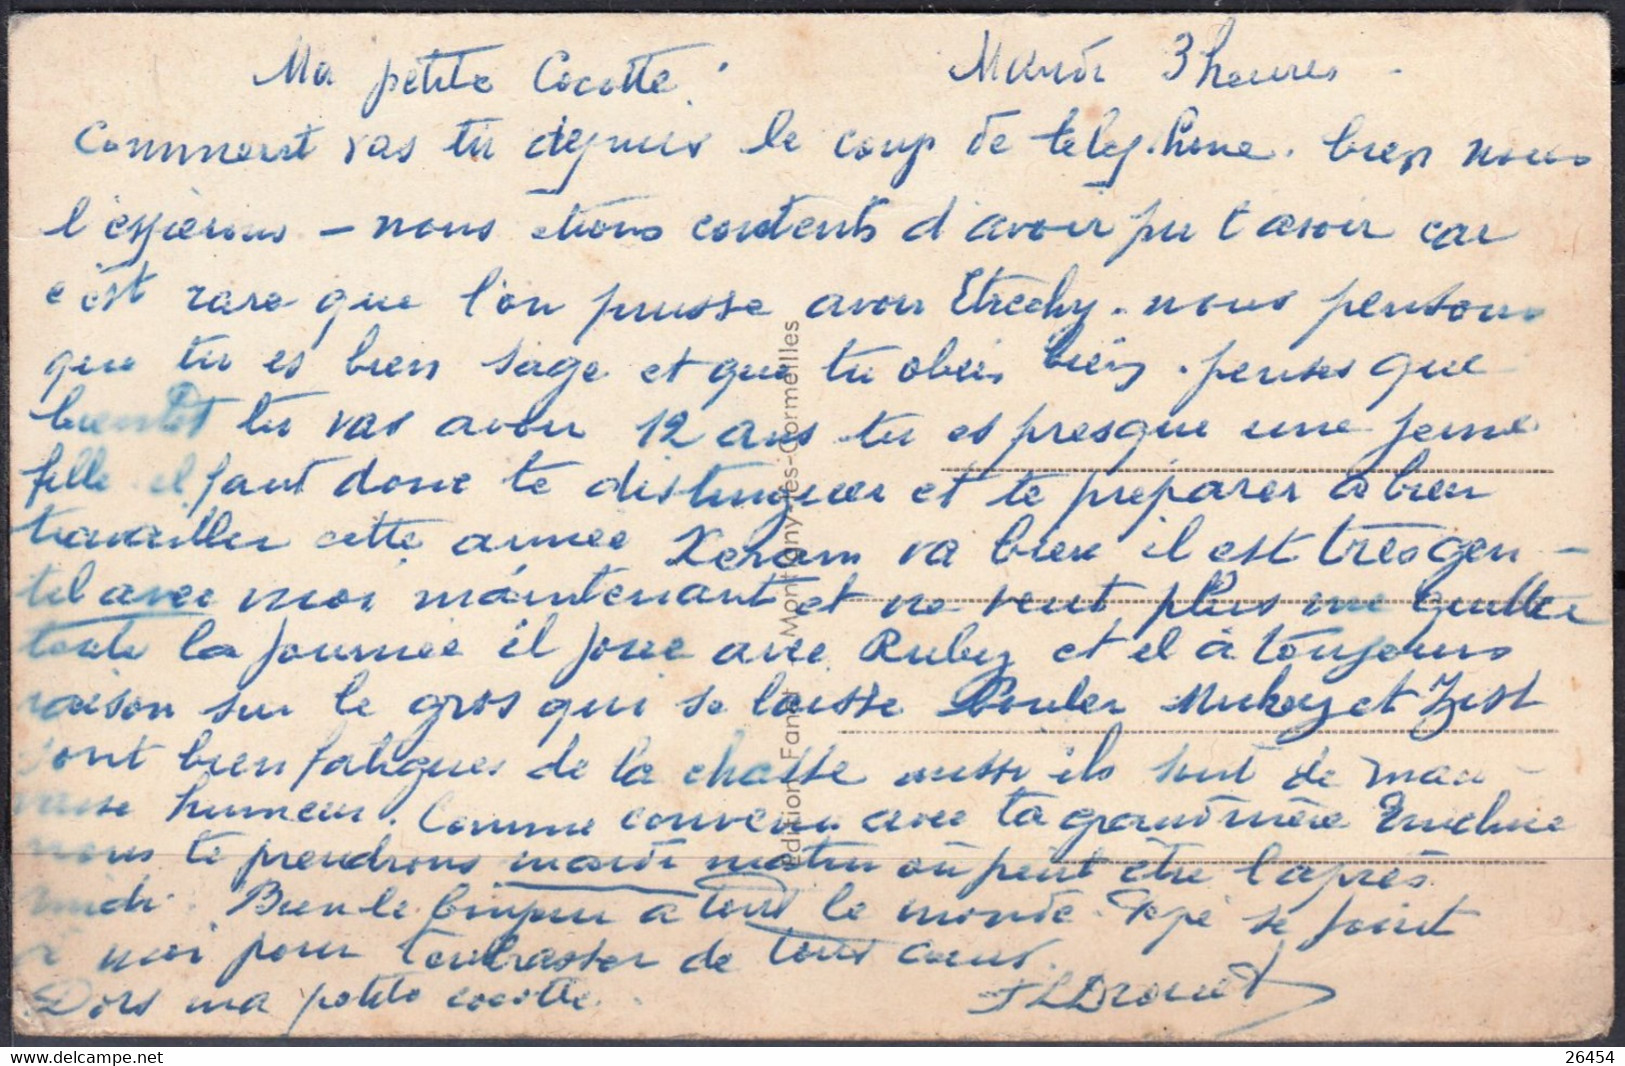 Ma petite Cocotte. Mardi 3 heures.
Comment vas tu depuis le coup de telephone. bien nous
l'esperons - nous étions contents d'avoir pu t avoir car
c'est rare que l'on puisse avoir Etrechy. nous pensons
que tu es bien sage et que tu obeis bien. penses que
bientot tu vas avoir 12 ans tu es presque une jeune
fille il faut donc te distinguer et te préparer à bien
travailler cette année va bien il est tres gen-
til avec moi maintenant et ne veut plus me quitter
toute la journée il joue avec Ruby et il à toujours
raison sur le gros qui se laisse et Zist
sont bien fatigues de la chasse aussi ils sont de mau-
vaise humeur. Comme convenu avec ta grand mère
nous te prendrons mardi matin où peut être l'après
midi. Bien le bonjour a tout le monde. Pépé se joint
à moi pour t'embrasser de tous cœurs.
Dors ma petite cocotte. Drouet
Edition Fanet Montigny-les-Cormeilles
© oldthing.com
26454